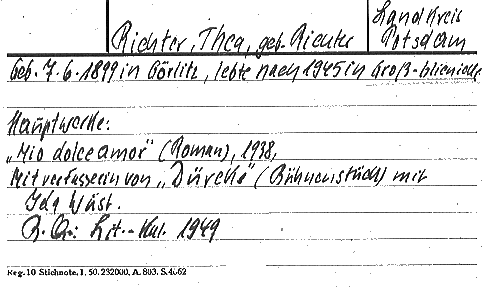 Landkreis
Richter, Thea, geb. Richter Potsdam
Geb. 7.6.1899 in Görlitz, lebte nach 1945 in Groß-Glienicke
Hauptwerke:
„Mio dolce amor" (Roman), 1938,
Mitverfasserin von „Dürchè" (Bühnenstück) mit
Ida Wüst.
B. Qu: Lit.-Kal. 1949
Reg. 10 Stichnote. I. 50. 232000. A. 803. S. 4662